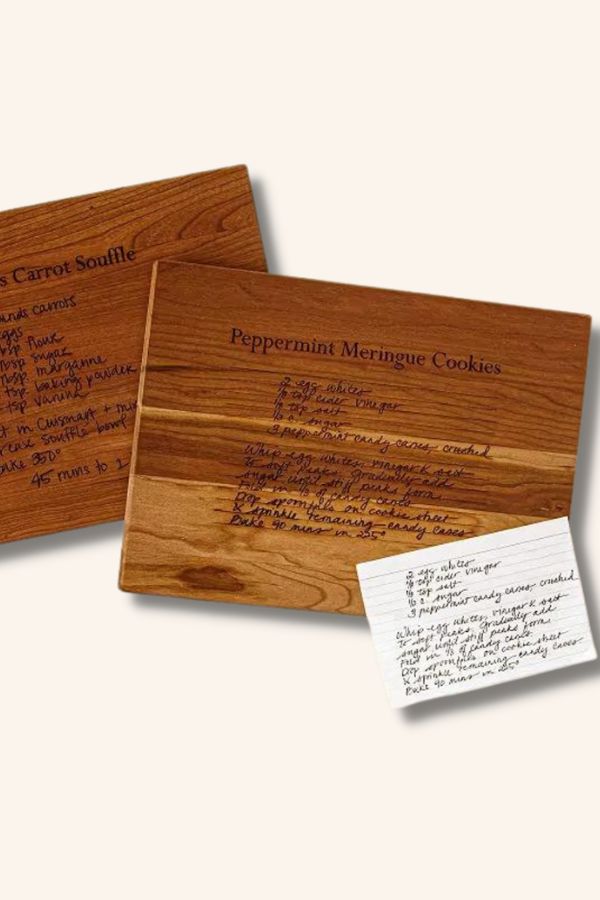 s Carrot Souffle
unds carrots
eggs
bsp flour
bsp sugar
bsp margarine
tsp baking powder
tsp vanilla
t in Cuisinart + mi
rease souffle bowl
ake 350°
45 mins to 1
Peppermint Meringue Cookies
2 egg whites
⅛ tsp cider vinegar
⅛ tsp salt
½ c. sugar
3 peppermint candy canes, crushed
Whip egg whites, vinegar & salt
to soft peaks. Gradually add
sugar until stiff peaks form.
Fold in ⅓ of candy canes.
Drop spoonfuls on cookie street
& sprinkle remaining candy canes
Bake 90 mins in 225°
2 egg whites
⅛ tsp cider vinegar
⅛ tsp salt
½ c. sugar
3 peppermint candy canes, crushed
Whip egg whites, vinegar & salt
to soft peaks. Gradually add
sugar until stiff peaks form.
Fold in ⅓ of candy canes.
Drop spoonfuls on cookie street
& sprinkle remaining candy canes
Bake 90 mins in 225°